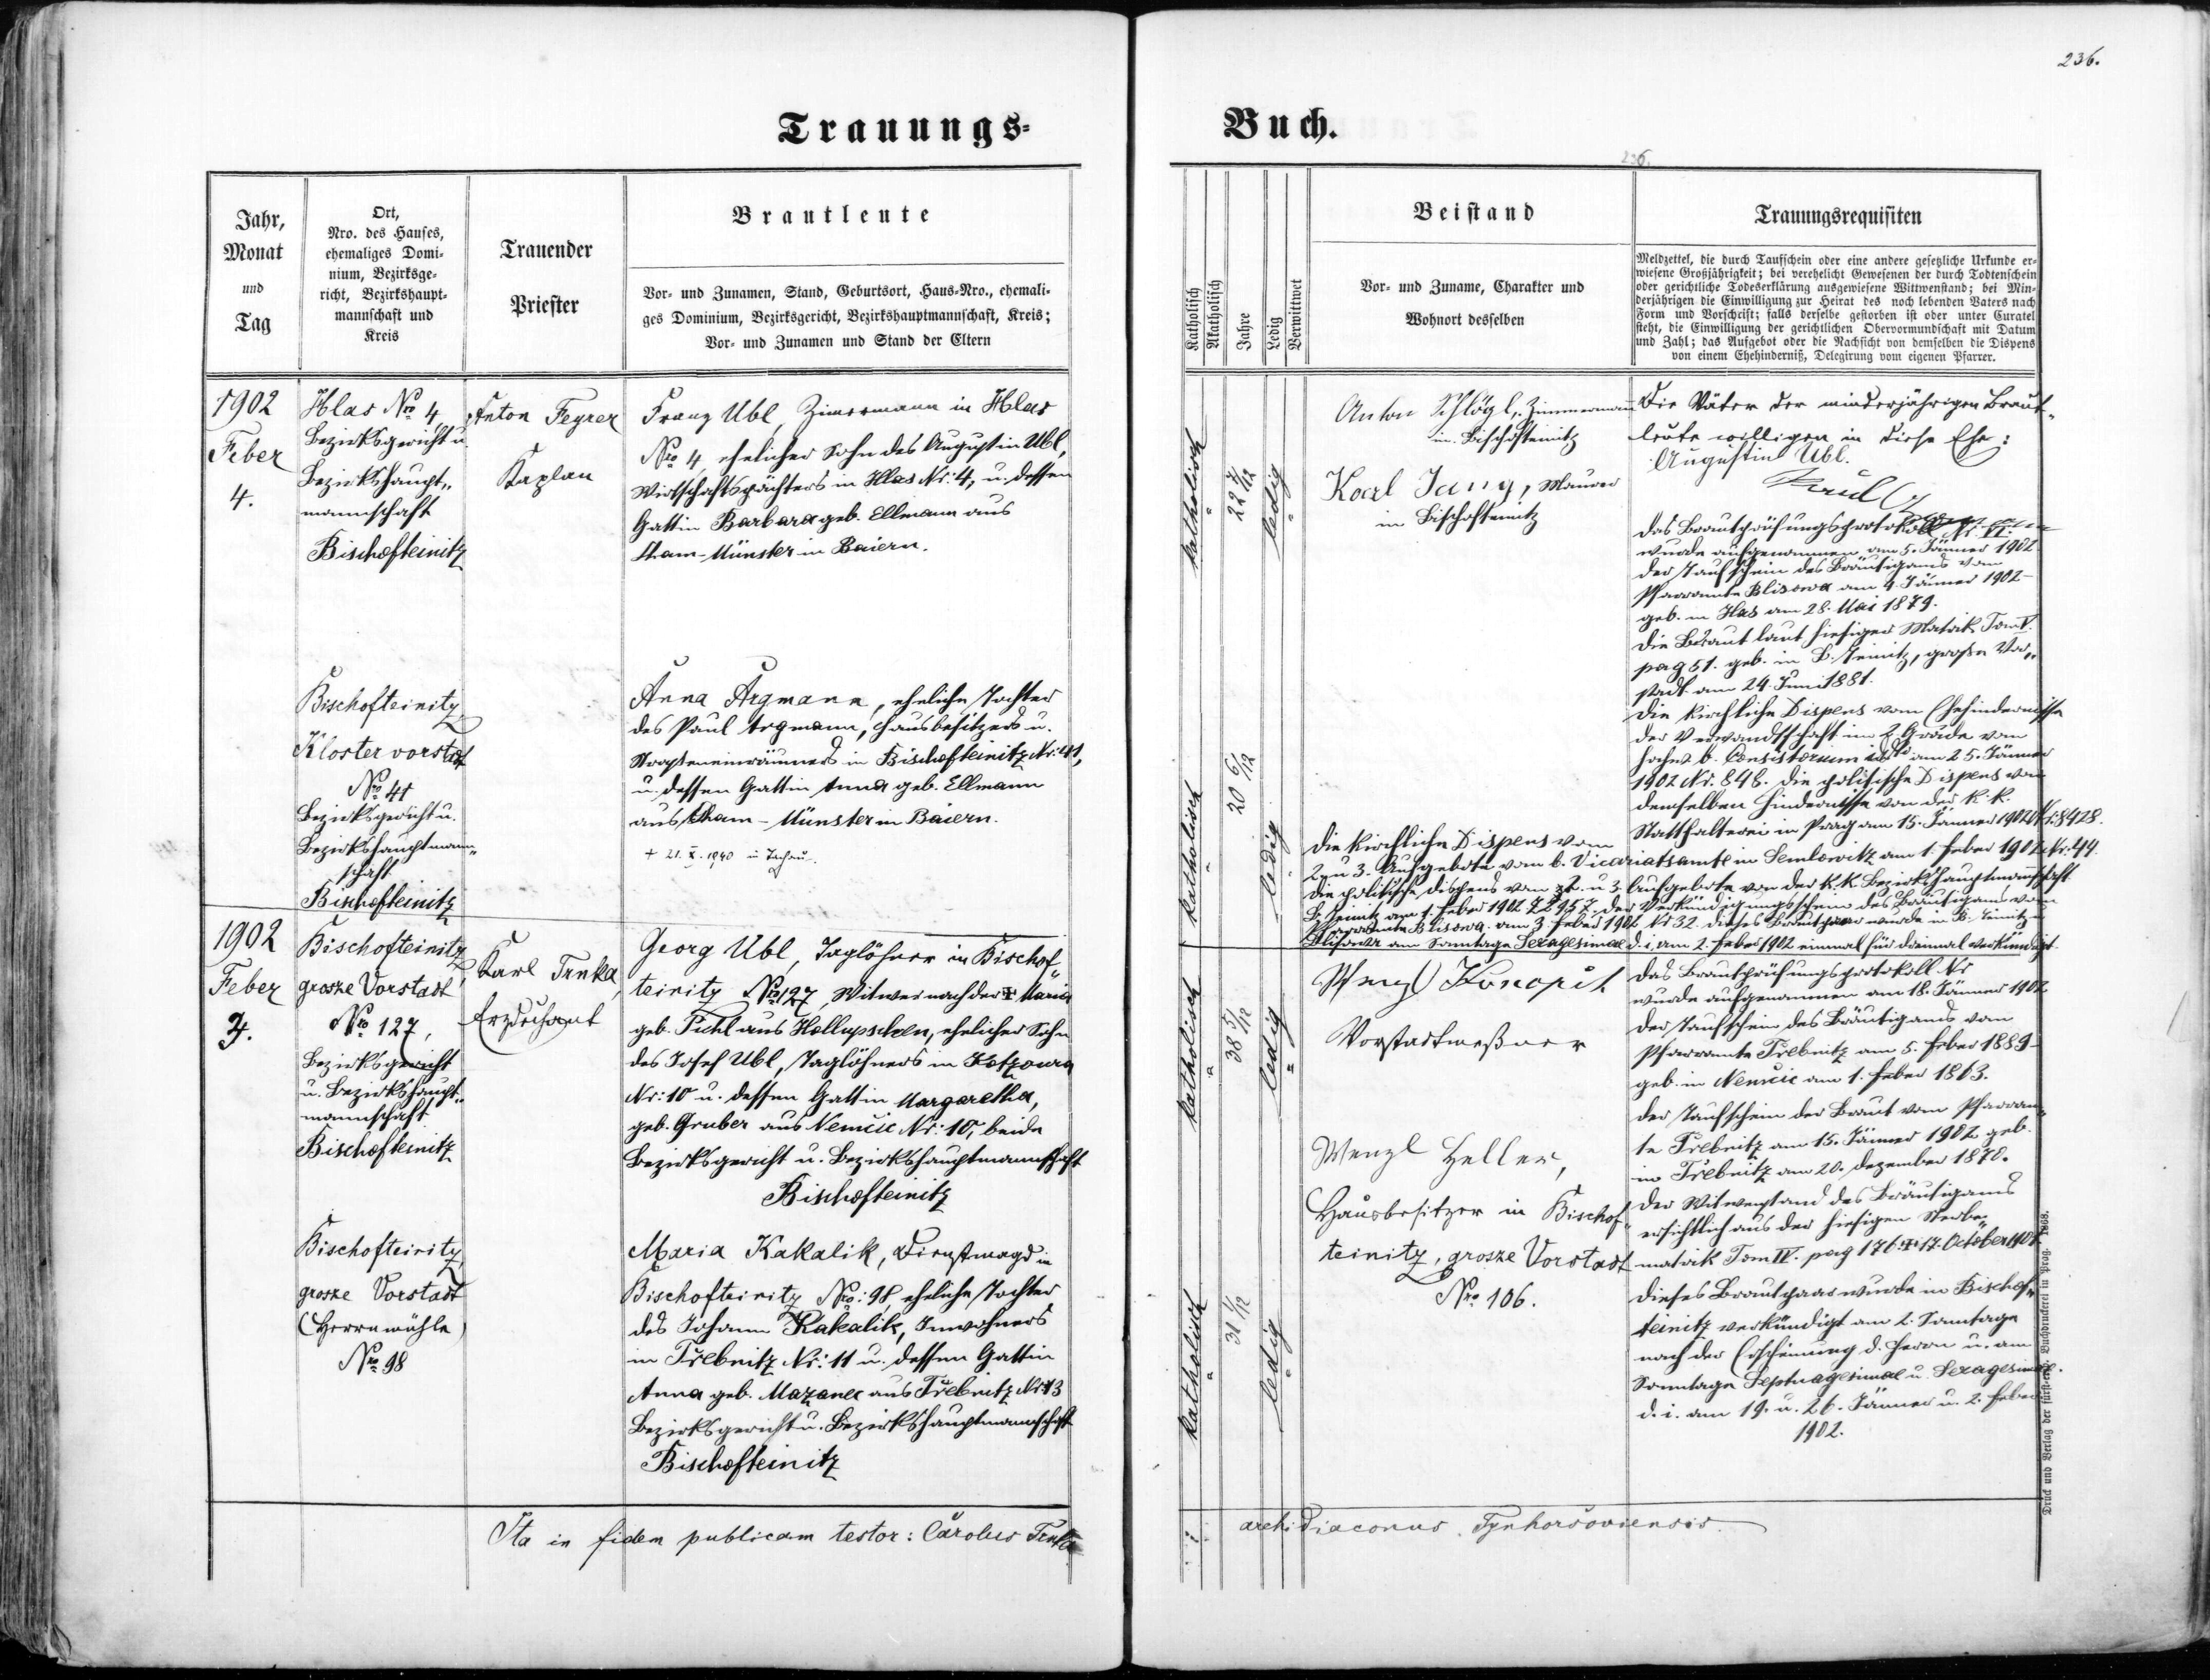 236.
Trauungs-
Buch.
236.
Jahr,
Monat
und
Tag
Ort,
Nro. des Hauses,
ehemaliges Domi-
nium, Bezirksge-
richt, Bezirkshaupt-
mannschaft und
Kreis
Trauender
Priester
Brautleute
Vor- und Zunamen, Stand, Geburtsort, Haus-Nro., ehemali-
ges Dominium, Bezirksgericht, Bezirkshauptmannschaft, Kreis;
Vor- und Zunamen und Stand der Eltern
Katholisch
Akatholisch
Jahre
Ledig
Verwittwet
Beistand
Vor- und Zuname, Charakter und
Wohnort desselben
Trauungsrequisiten
Meldzettel, die durch Taufschein oder eine andere gesetzliche Urkunde er-
wiesene Großjährigkeit; bei verehelicht Gewesenen der durch Todtenschein
oder gerichtliche Todeserklärung ausgewiesene Wittwenstand; bei Min-
derjährigen die Einwilligung zur Heirat des noch lebenden Vaters nach
Form und Vorschrift; falls derselbe gestorben ist oder unter Curatel
steht, die Einwilligung der gerichtlichen Obervormundschaft mit Datum
und Zahl; das Aufgebot oder die Nachsicht von demselben die Dispens
von einem Ehehinderniß, Delegirung vom eigenen Pfarrer.
1902
Feber
4.
Hlas Nro 4
Bezirksgericht u
Bezirkshaupt„
mannschaft
Bischofteinitz
Anton Feyrer
Kaplan
Franz Ubl, Zimmermann in Hlas
Nro 4, ehelicher Sohn des Augustin Ubl,
Wirtschaftspächters in Hlas Nr: 4, u. dessen
Gattin Barbara geb. Ellmann aus
Cham-Münster in Baiern.
katholisch
22 7/12
ledig
Anton Schlögl, Zimmermann
in Bischofteinitz
Karl Jung, Maurer
in Bischofteinitz
Die Väter der minderjährigen Braut-
leute willigen in diese Ehe:
Augustin Ubl.
Paul
Das Brautprüfungsprotokoll Nr. VI.
wurde aufgenommen am 5. Jänner 1902
Der Taufschein des Bräutigams vom
Pfarramte Blisowa am 4. Jänner 1902-
geb. in Hlas am 28. Mai 1879.
Die Braut laut hiesiger Matrik Tom V.
pag 51. geb. in B. Teinitz, große Vor„
stadt am 24. Juni 1881.
Die kirchliche Dispens vom Ehehindernisse
der Verwandtschaft im 2. Grade vom
hochw. b. Consistorium ddto am 25. Jänner
1902 Nr. 846. die politische Dispens von
demselben Hindernisse von der k. k.
Statthalterei in Prag am 15. Jänner 1902 Nr: 8428.
Bischofteinitz
Klostervorstadt
Nro 41
Bezirksgericht u.
Bezirkshauptmann„
schaft
Bischofteinitz
Anna Argmann, eheliche Tochter
des Paul Argmann, Hausbesitzers u.
Straßeneinräumers in Bischofteinitz Nr: 41,
u. dessen Gattin Anna geb. Ellmann
aus Cham-Münster in Baiern.
+ 21. X. 1940 in Tachau.
katholisch
20 6/12
ledig
Die kirchliche Dispens vom
2. u 3. Aufgebote vom b. Vicariatsamte in Semlowitz am 1. Feber 1902 Nr: 44.
Die politische Dispens vom 2. u 3. Aufgebote von der k. k. Bezirkshauptmannschaft
B. Teinitz am 1. Feber 1902 Z 2957. Der Verkündigungsschein des Bräutigams vom
Pfarramte Blisowa am 3. Feber 1902 Nr 32. Dieses Brautpaar wurde in B. Teinitz u
Blisowa am Sonntage Sexagesimae d. i. am 2. Feber 1902 einmal für dreimal verkündigt.
1902
Feber
4.
Bischofteinitz,
grosze Vorstadt
Nro 127,
Bezirksgericht
u. Bezirkshaupt„
mannschaft
Bischofteinitz
Karl Trnka,
Erzdechant
Georg Ubl, Taglöhner in Bischof„
teinitz Nro 127, Witwer nach der + Maria
geb. Pichl aus Hollupschen, ehelicher Sohn
des Josef Ubl, Taglöhners in Kotzoura
Nr: 10 u. dessen Gattin Margaretha,
geb. Gruber aus Nemčic Nr: 10, beide
Bezirksgericht u. Bezirkshauptmannschaft
Bischofteinitz
katholisch
38 5/12
ledig
Wenzl Konopik
Vorstadtmeßner
Das Brautprüfungsprotokoll Nr
wurde aufgenommen am 18. Jänner 1902
Der Taufschein des Bräutigams vom
Pfarramte Trebnitz am 5. Feber 1889-
geb. in Nemčic am 1. Feber 1863.
Der Taufschein der Braut vom Pfarram„
te Trebnitz am 15. Jänner 1902 geb.
in Třebnitz am 20. Dezember 1870.
Der Witwerstand des Bräutigams
ersichtlich aus der hiesigen Sterbe„
matrik Tom IV. pag 176. + 17. October 1901.
Dieses Brautpaar wurde in Bischof„
teinitz verkündigt am 2. Sonntage
nach der Erscheinung d. Herrn u. am
Sonntage Septuagesimae u. Sexagesimae.
d. i. am 19. u. 26. Jänner u. 2. Feber
1902.
Bischofteinitz
grosze Vorstadt
(Herrnmühle)
Nro 98
Maria Kakalik, Dienstmagd in
Bischofteinitz Nro: 98, eheliche Tochter
des Johann Kakalik, Inwohners
in Třebnitz Nr: 11 u. dessen Gattin
Anna geb. Mazanec aus Třebnitz Nr: 13
Bezirksgericht u. Bezirkshauptmannschaft
Bischofteinitz
katholisch
31 1/12
ledig
Wenzl Heller,
Hausbesitzer in Bischof„
teinitz, grosze Vorstadt
Nro 106.
Ita in fidem publicam testor: Carolus Trnka
archidiaconus Tynhoršoviensis.
Druck und Verlag der fürst-erzb. Buchdruckerei in Prag. 1868.